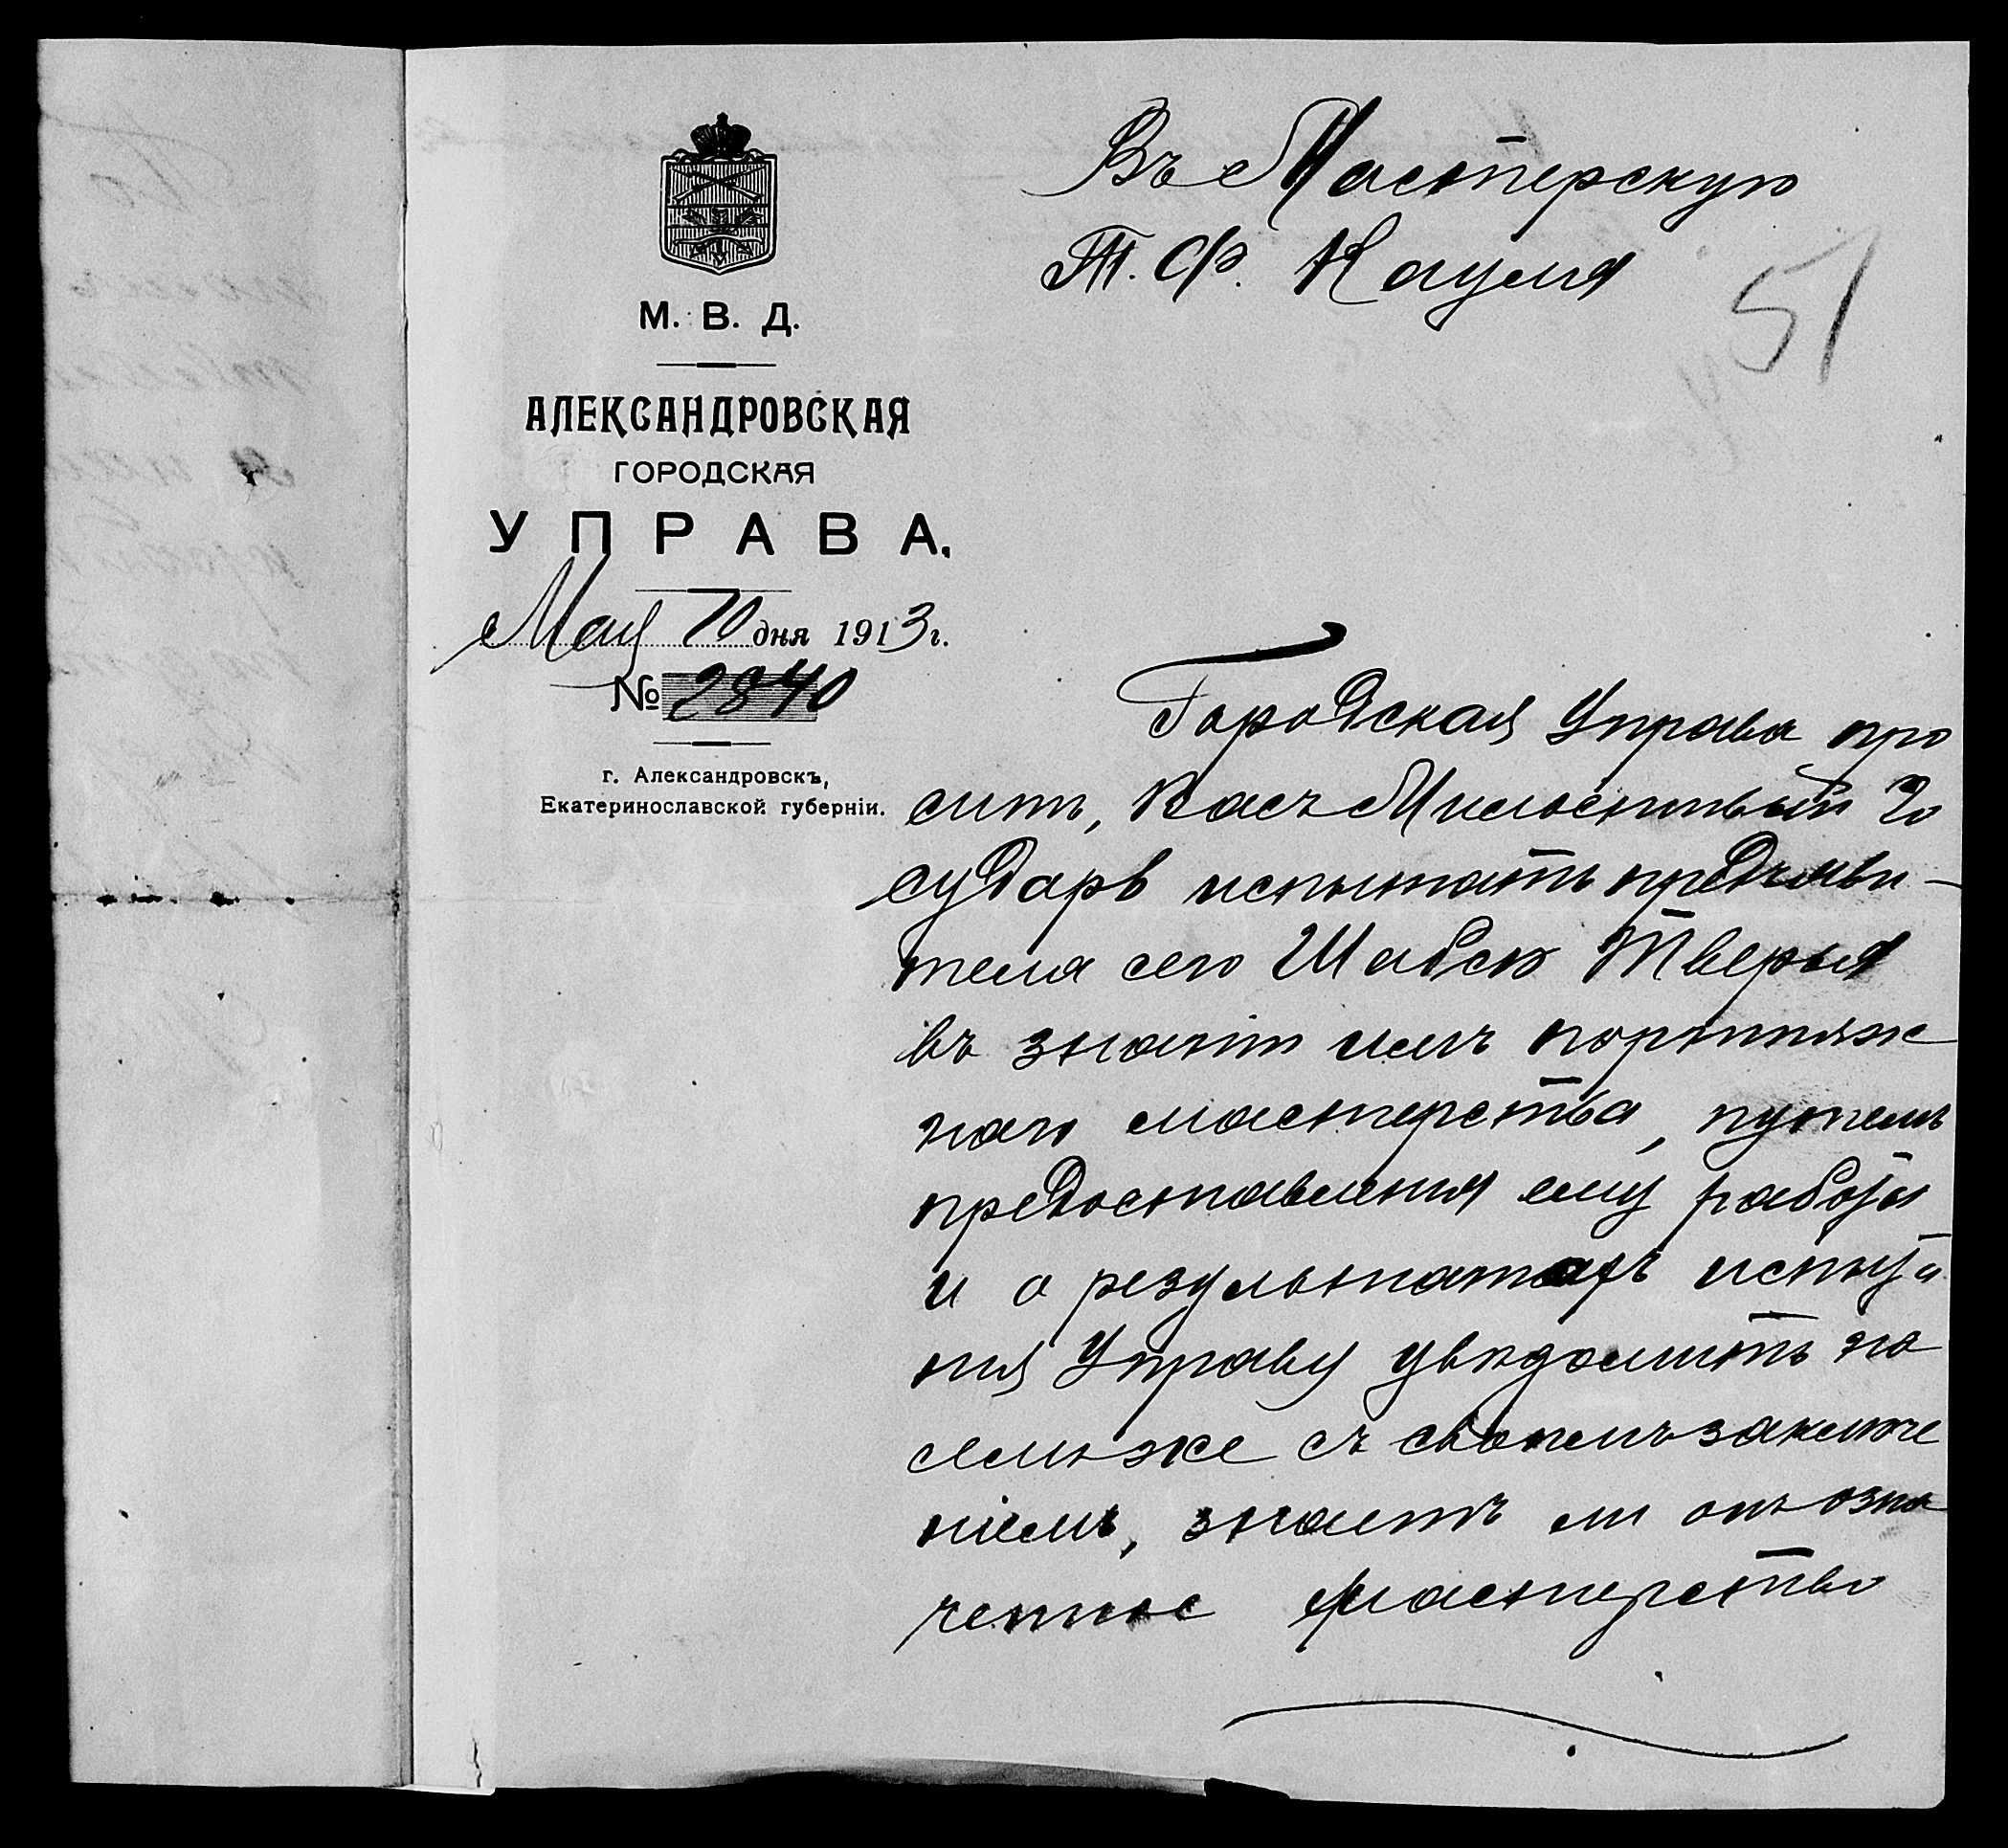 Въ Мастерскую
Т. Ф. Науля
51
М. В. Д.
АЛЕКСАНДРОВСКАЯ
ГОРОДСКАЯ
УПРАВА.
Мая 10 дня 1913 г.
№ 2840
г. Александровскъ,
Екатеринославской губерніи.
Городская Управа про
ситъ, Васъ Милостивый Го
сударь испытать предъяви-
теля сего Тверья
въ знаніи имъ портняж
наго мастерства, путемъ
предоставленія ему работы
и о результатахъ испыта
нія Управу увѣдомить на
семъ же съ своимъ заключе
ніемъ, знаетъ ли онъ озна
ченное мастерство